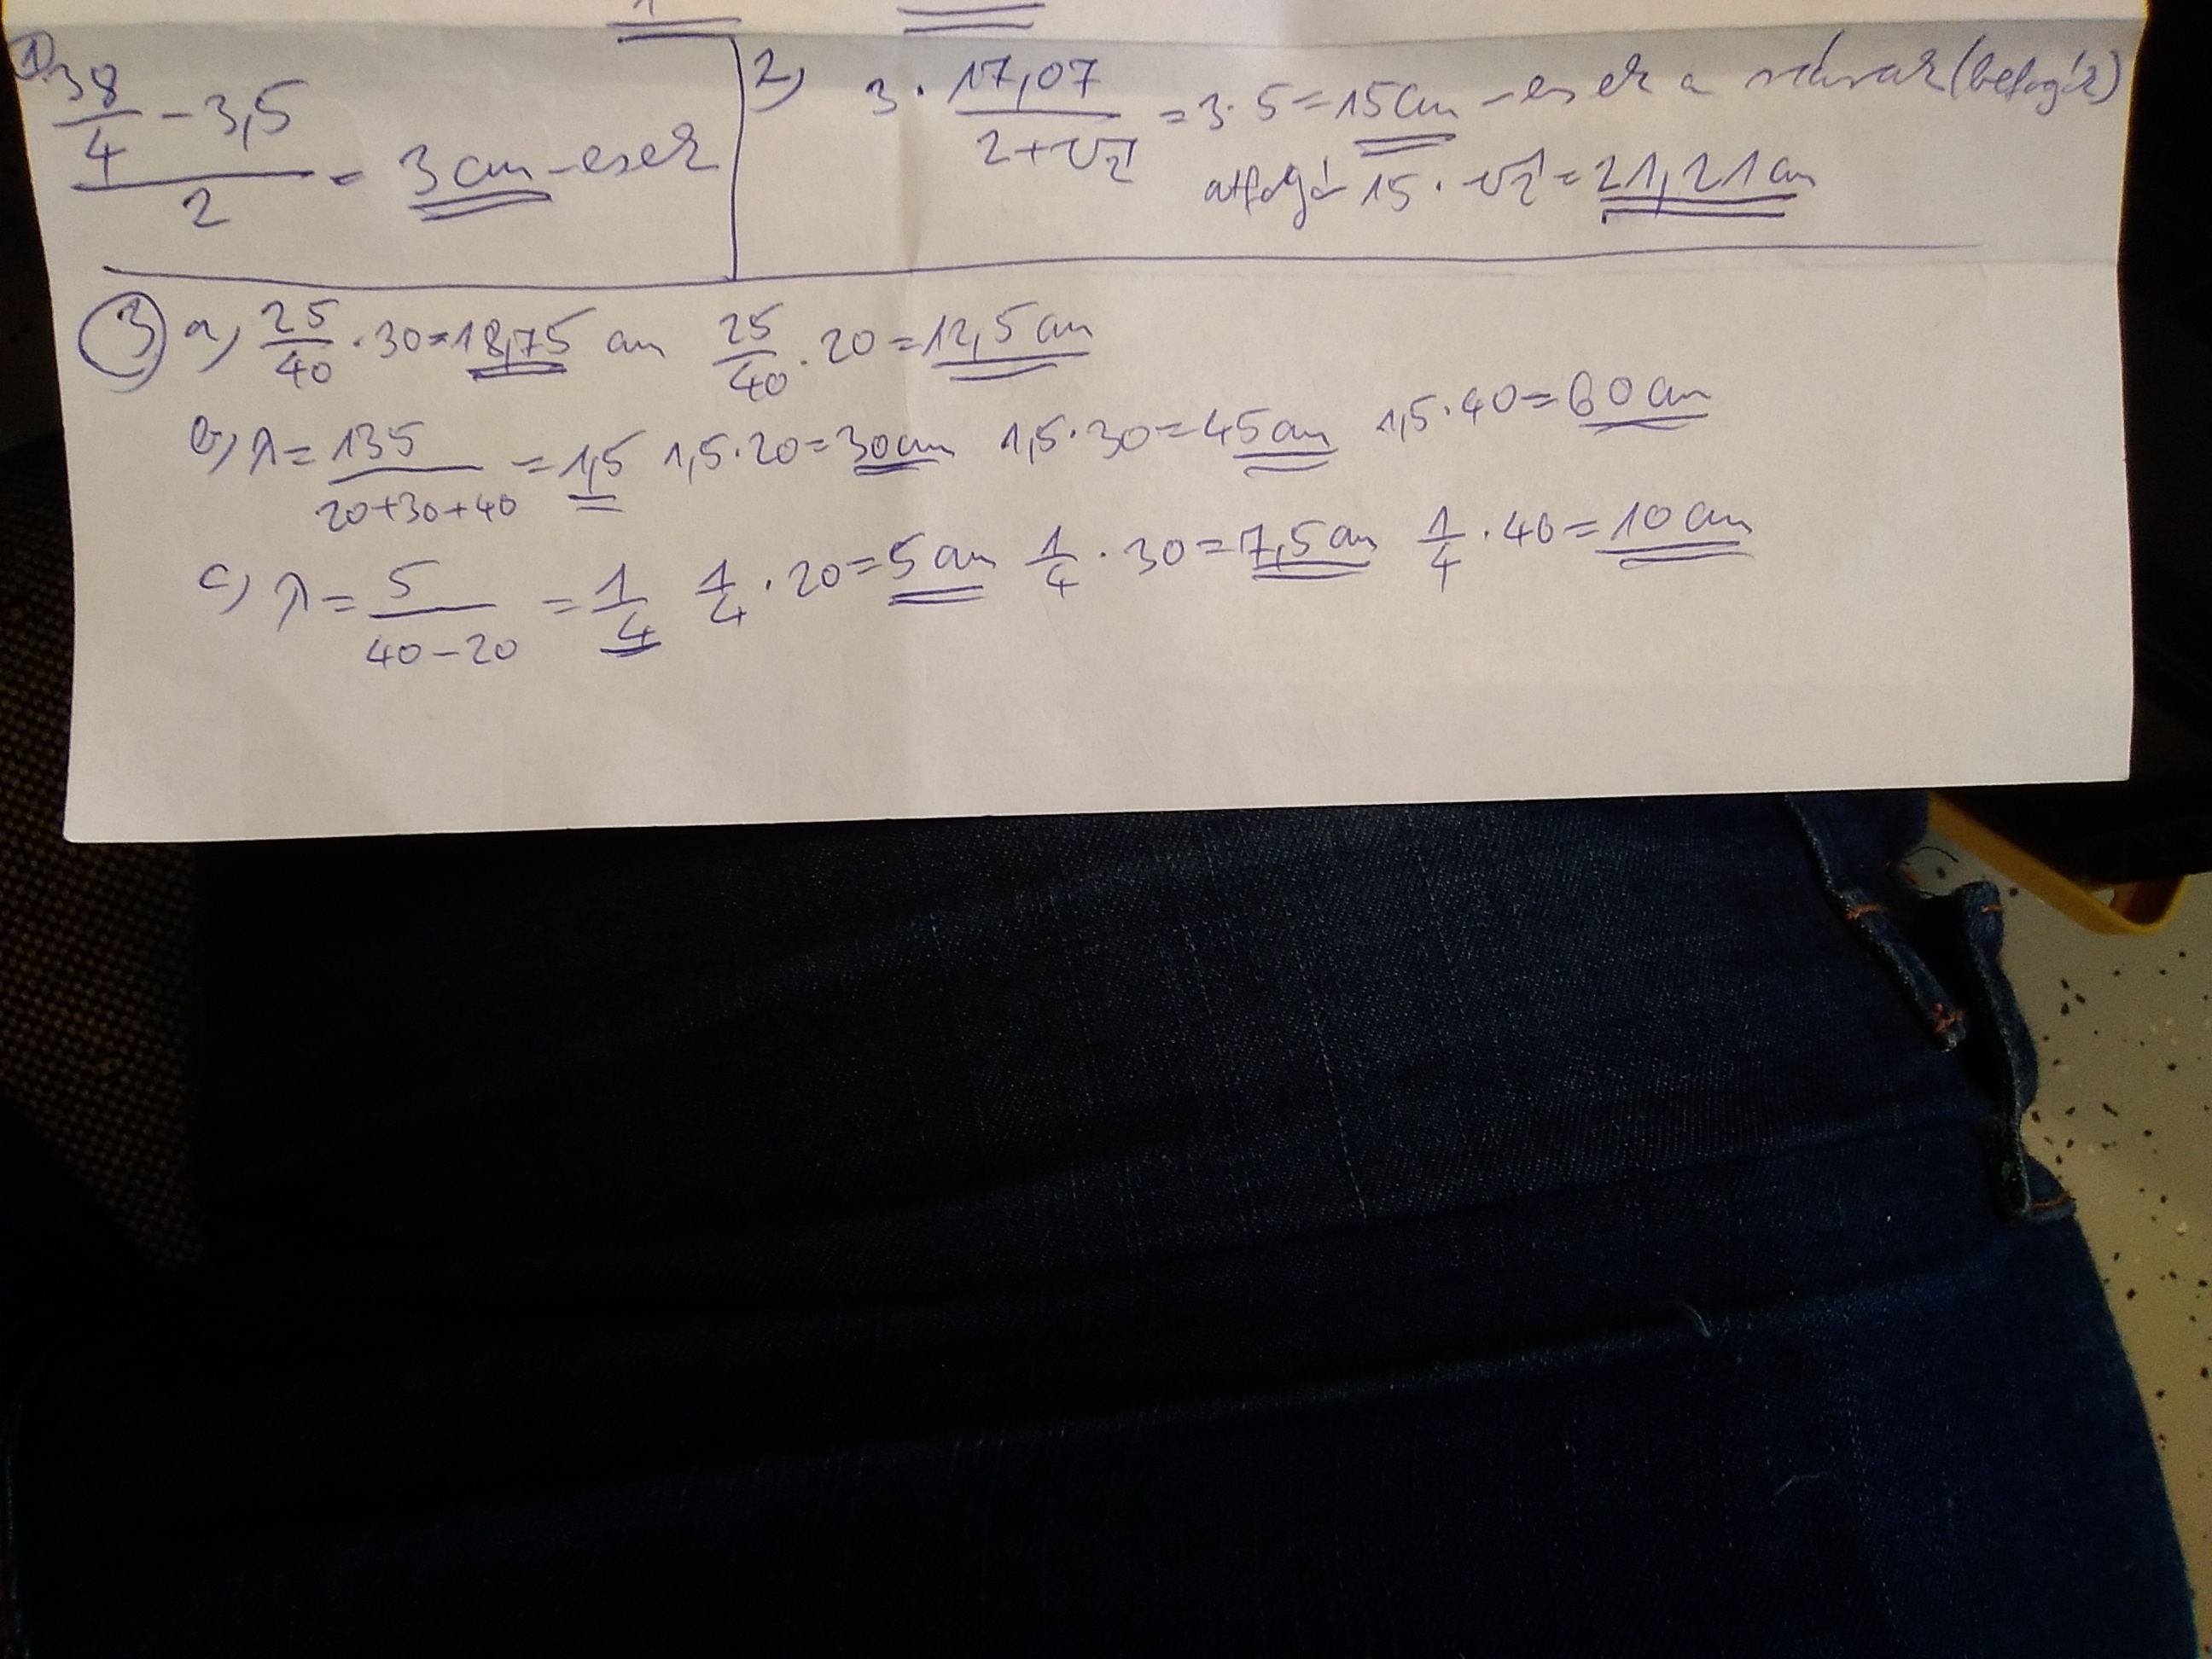 1) (38/4 - 3,5)/2 = 3 cm-esek
2) 3 · 17,07/(2+√2) = 3·5 = 15 cm -esek a szárak (befogók)
átfogó 15 · √2 = 21,21 cm
3) a) 25/40 · 30 = 18,75 cm 25/40 · 20 = 12,5 cm
b) λ = 135/(20+30+40) = 1,5 1,5·20 = 30 cm 1,5·30 = 45 cm 1,5·40 = 60 cm
c) λ = 5/(40-20) = 1/4 1/4 · 20 = 5 cm 1/4 · 30 = 7,5 cm 1/4 · 40 = 10 cm